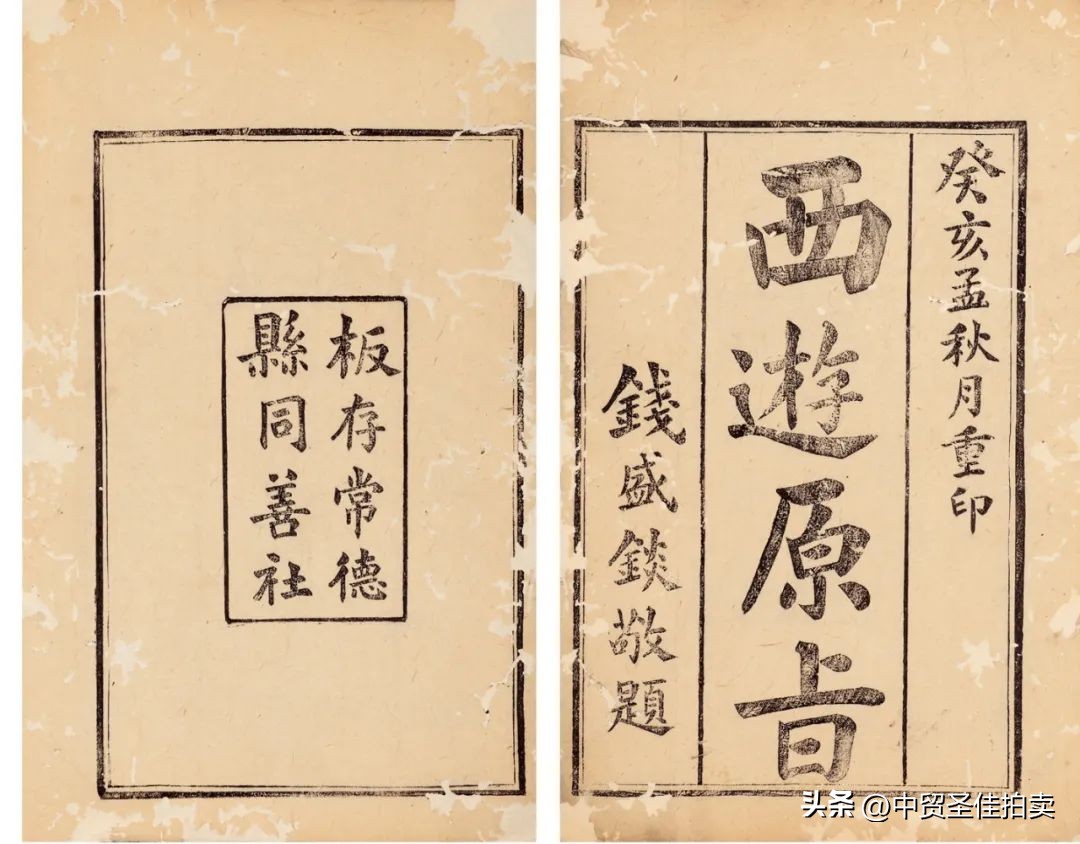 癸亥孟秋月重印
西遊原㫖
錢盛錟敬題
板存常德
縣同善社
头条 @中贸圣佳拍卖